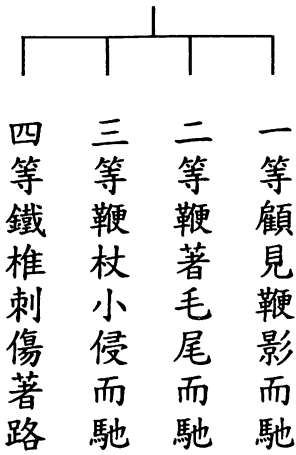 一等顧見鞭影而馳
二等鞭著毛尾而馳
三等鞭杖小侵而馳
四等鐵椎刺傷著路